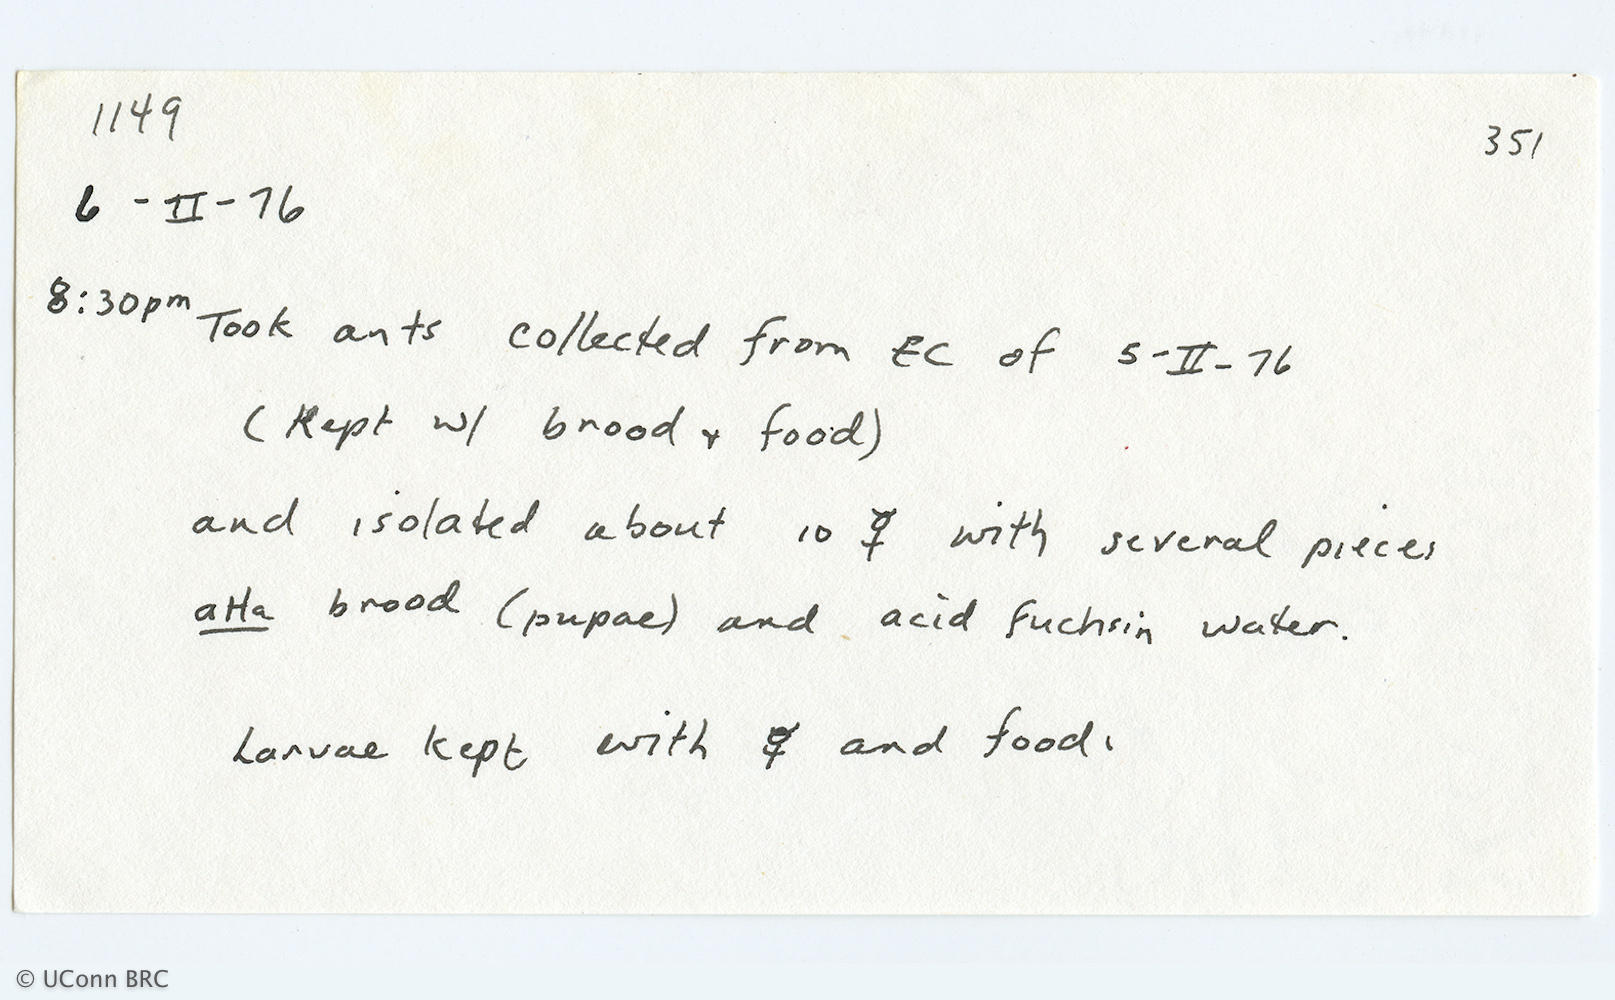 1149
351
6 - II - 76
8:30pm Took ants collected from EC of 5-II-76
(Kept w/ brood + food)
and isolated about 10 ☿ with several pieces
atta brood (pupae) and acid fuchsin water.
Larvae kept with ☿ and food.
© UConn BRC